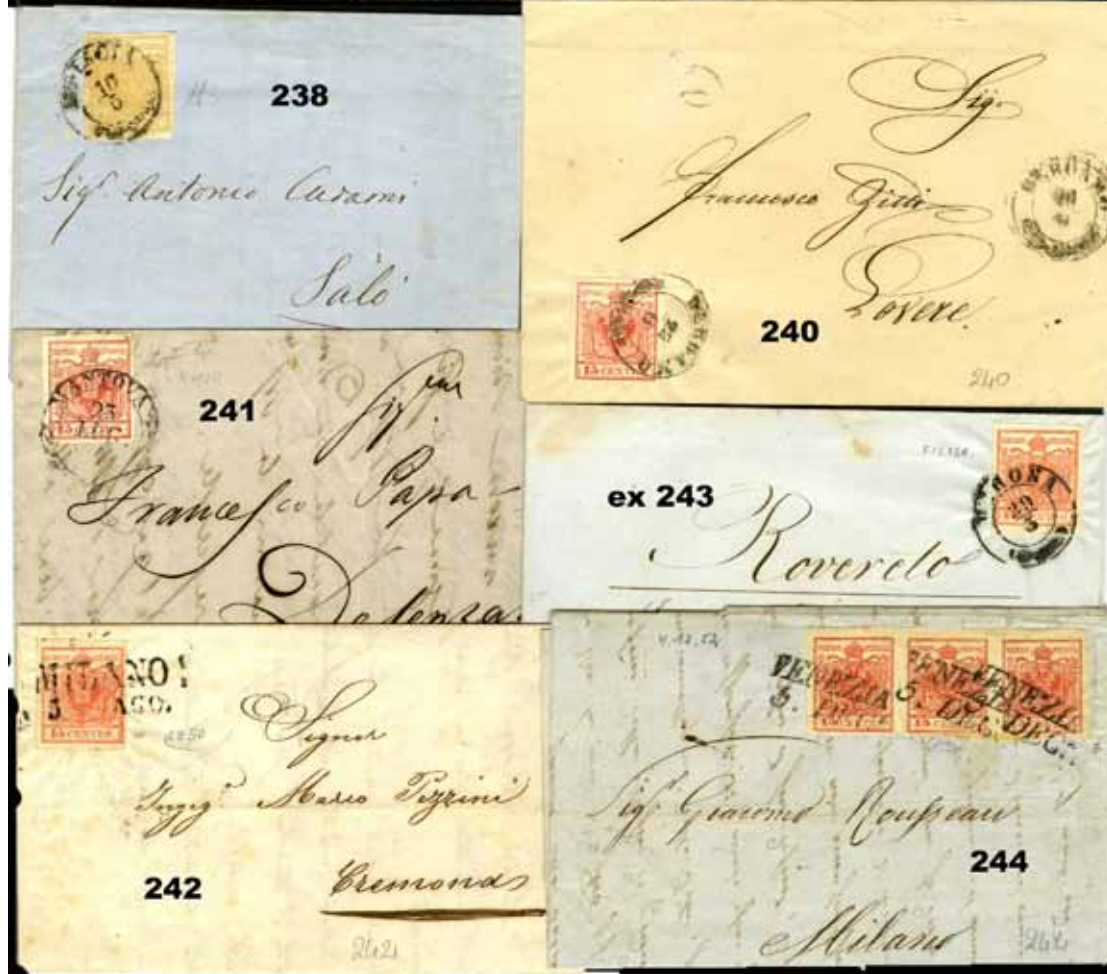 10
238
Sigr Antonio
Salò
Sigr
Francesco
Lovere.
BERGAMO
15 CENTES
240
240
MANTOVA
23
241
Francesco Papa
15 CENTES
ex 243
VERONA
29
Rovereto
MILANO
3 AGO.
15 CENTES
Signor
Ingegr Marco Pizzini
Cremona
242
242
VENEZIA
3. DEC.
VENEZIA
3. DEC.
VENEZIA
DEC.
Sigr Giacomo Rousseau
244
Milano
244